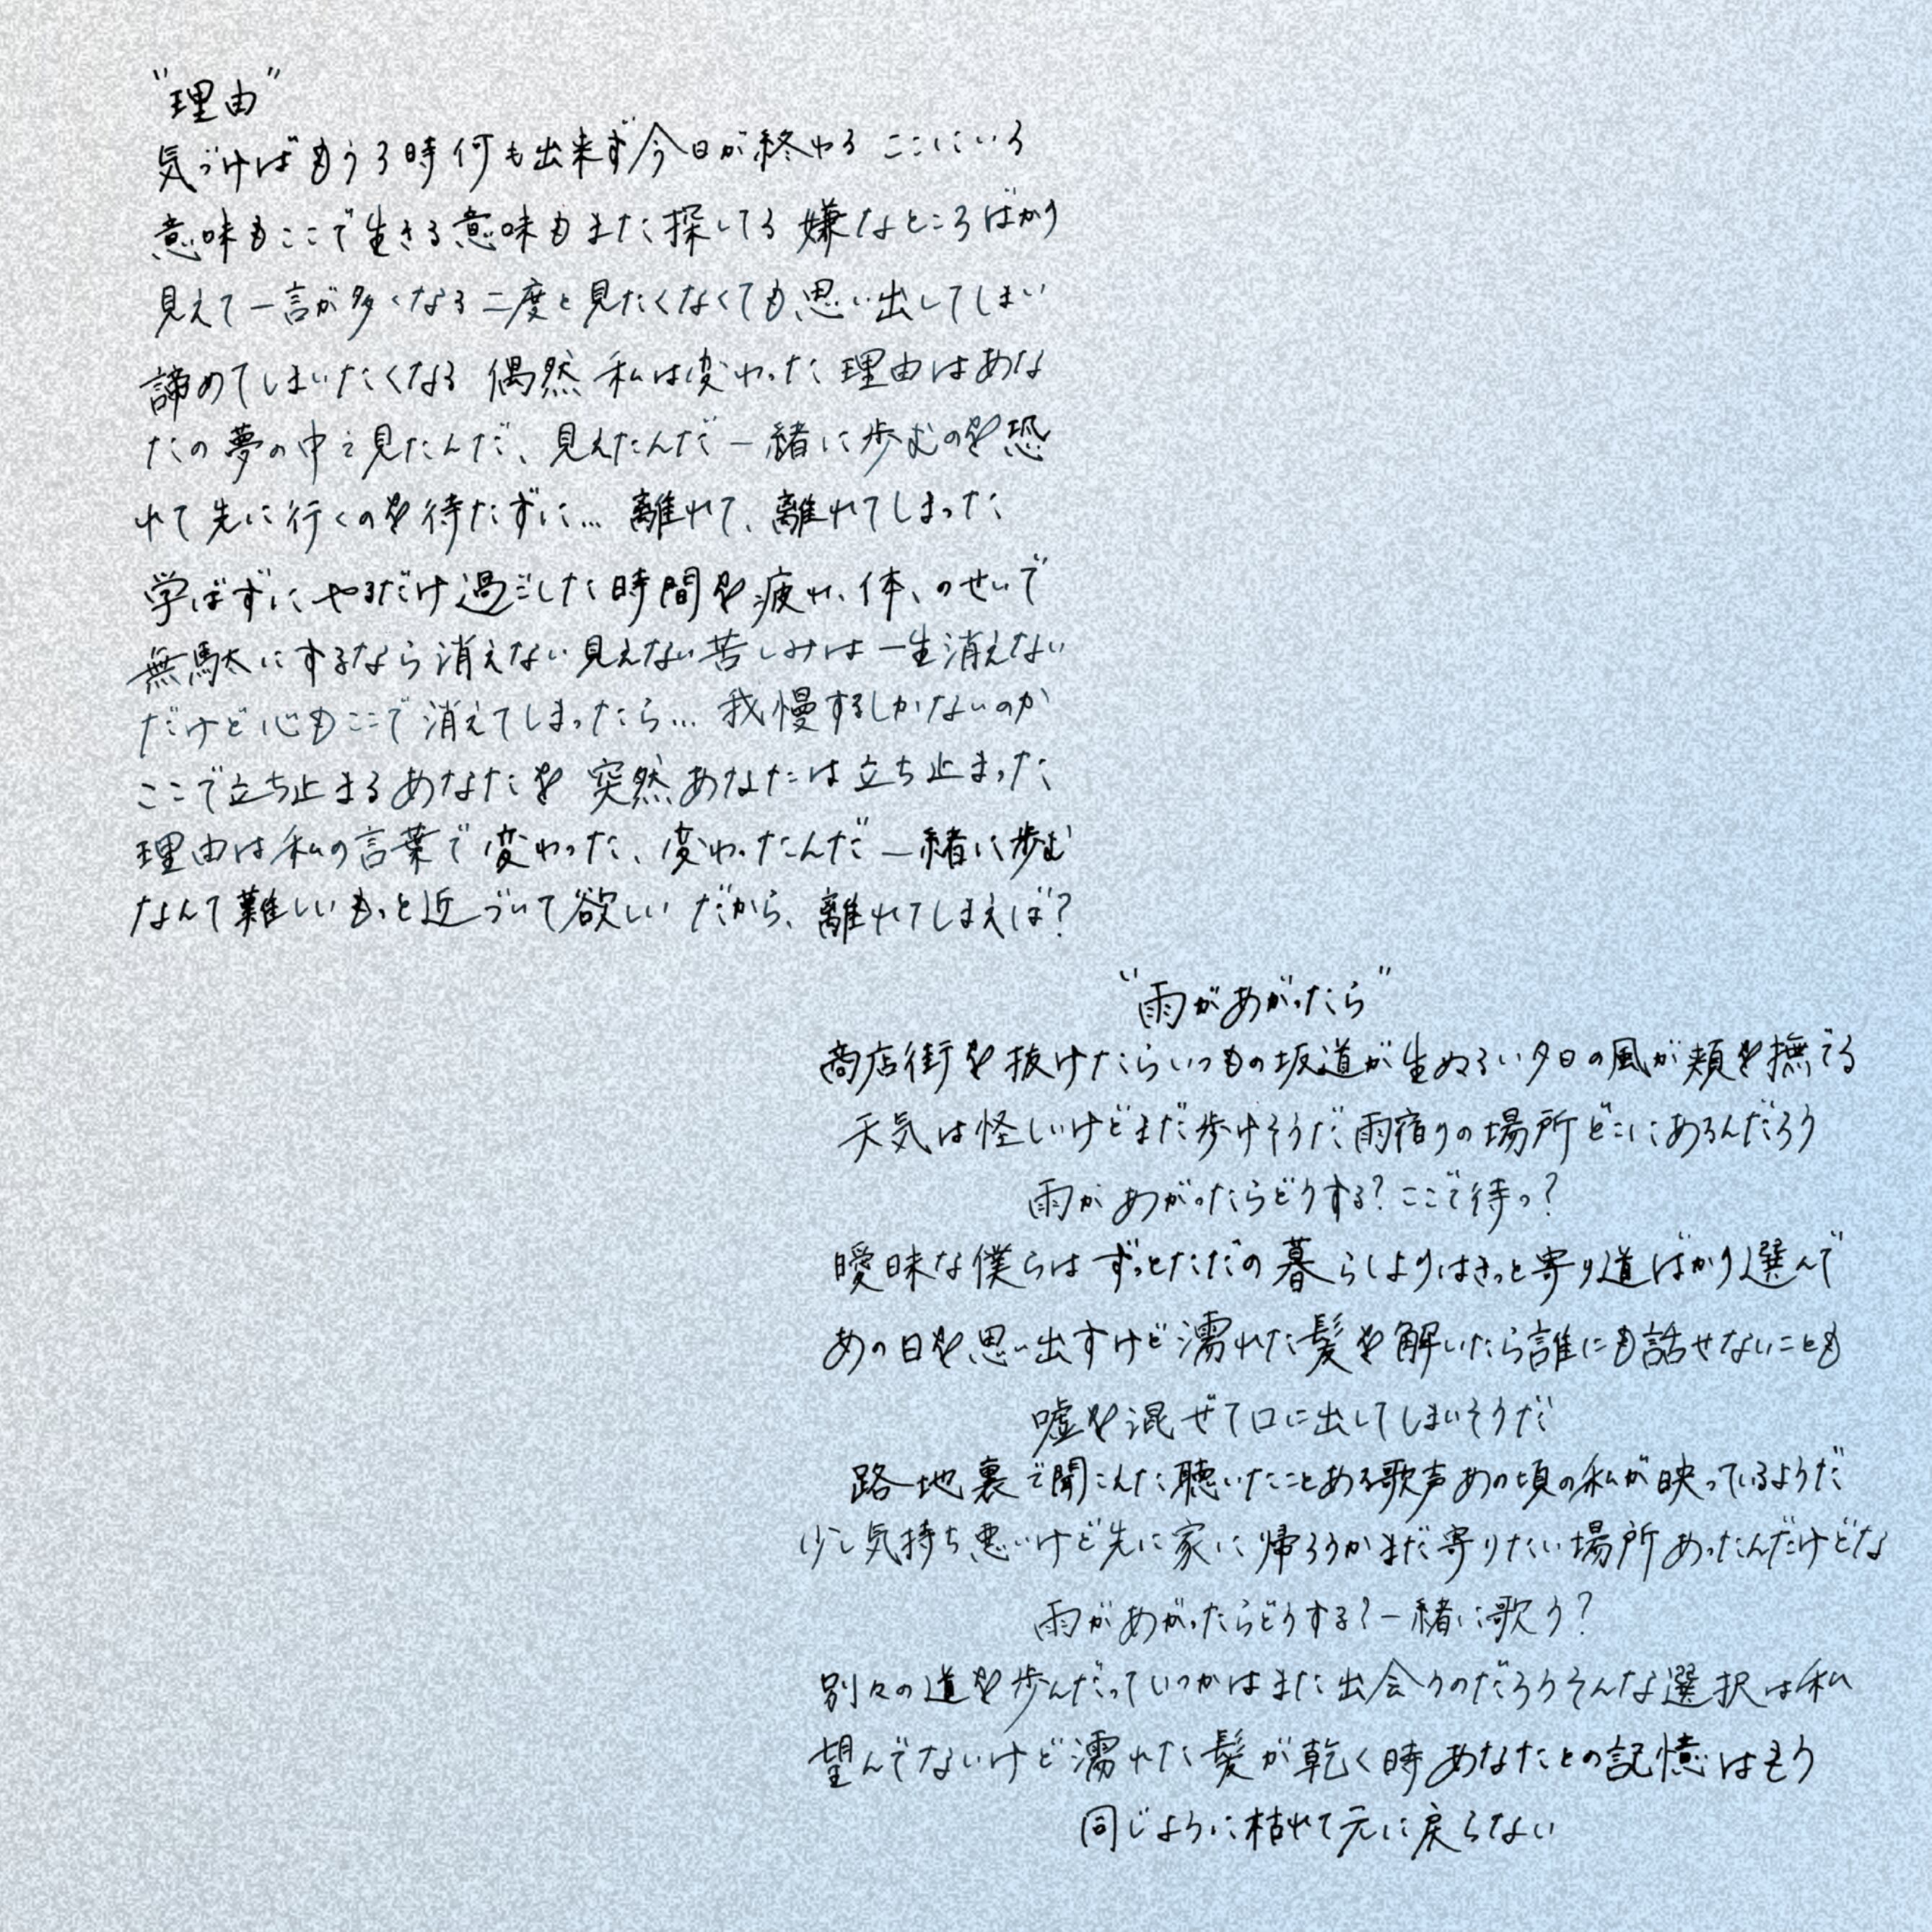 “理由”
気づけばもう3時何も出来ず今日が終わる ここにいる
意味もここで生きる意味もまた探してる 嫌なところばかり
見えて一言が多くなる二度と見たくなくても思い出してしまい
諦めてしまいたくなる 偶然 私は変わった理由はあな
たの夢の中で見たんだ、見えたんだ一緒に歩むのを恐
れて先に行くのを待たずに…離れて、離れてしまった
学ばずにやるだけ過ごした時間を疲れ、体、のせいで
無駄にするなら消えない見えない苦しみは一生消えない
だけど心もここで消えてしまったら…我慢するしかないのか
ここで立ち止まるあなたを 突然あなたは立ち止まった
理由は私の言葉で変わった、変わったんだ一緒に歩む
なんて難しいもっと近づいて欲しい だから、離れてしまえば?
“雨があがったら”
商店街を抜けたらいつもの坂道が生ぬるい夕日の風が頬を撫でる
天気は怪しいけどまだ歩けそうだ雨宿りの場所どこにあるんだろう
雨があがったらどうする?ここで待つ?
曖昧な僕らはずっとただの暮らしよりはきっと寄り道ばかり選んで
あの日を思い出すけど濡れた髪を解いたら誰にも話せないことも
嘘を混ぜて口に出してしまいそうだ
路地裏で聞こえた聴いたことある歌声あの頃の私が映っているようだ
少し気持ち悪いけど先に家に帰ろうかまだ寄りたい場所あったんだけどな
雨があがったらどうする?一緒に歌う?
別々の道を歩んだっていつかはまた出会うのだろうそんな選択は私
望んでないけど濡れた髪が乾く時あなたとの記憶はもう
同じように枯れて元に戻らない